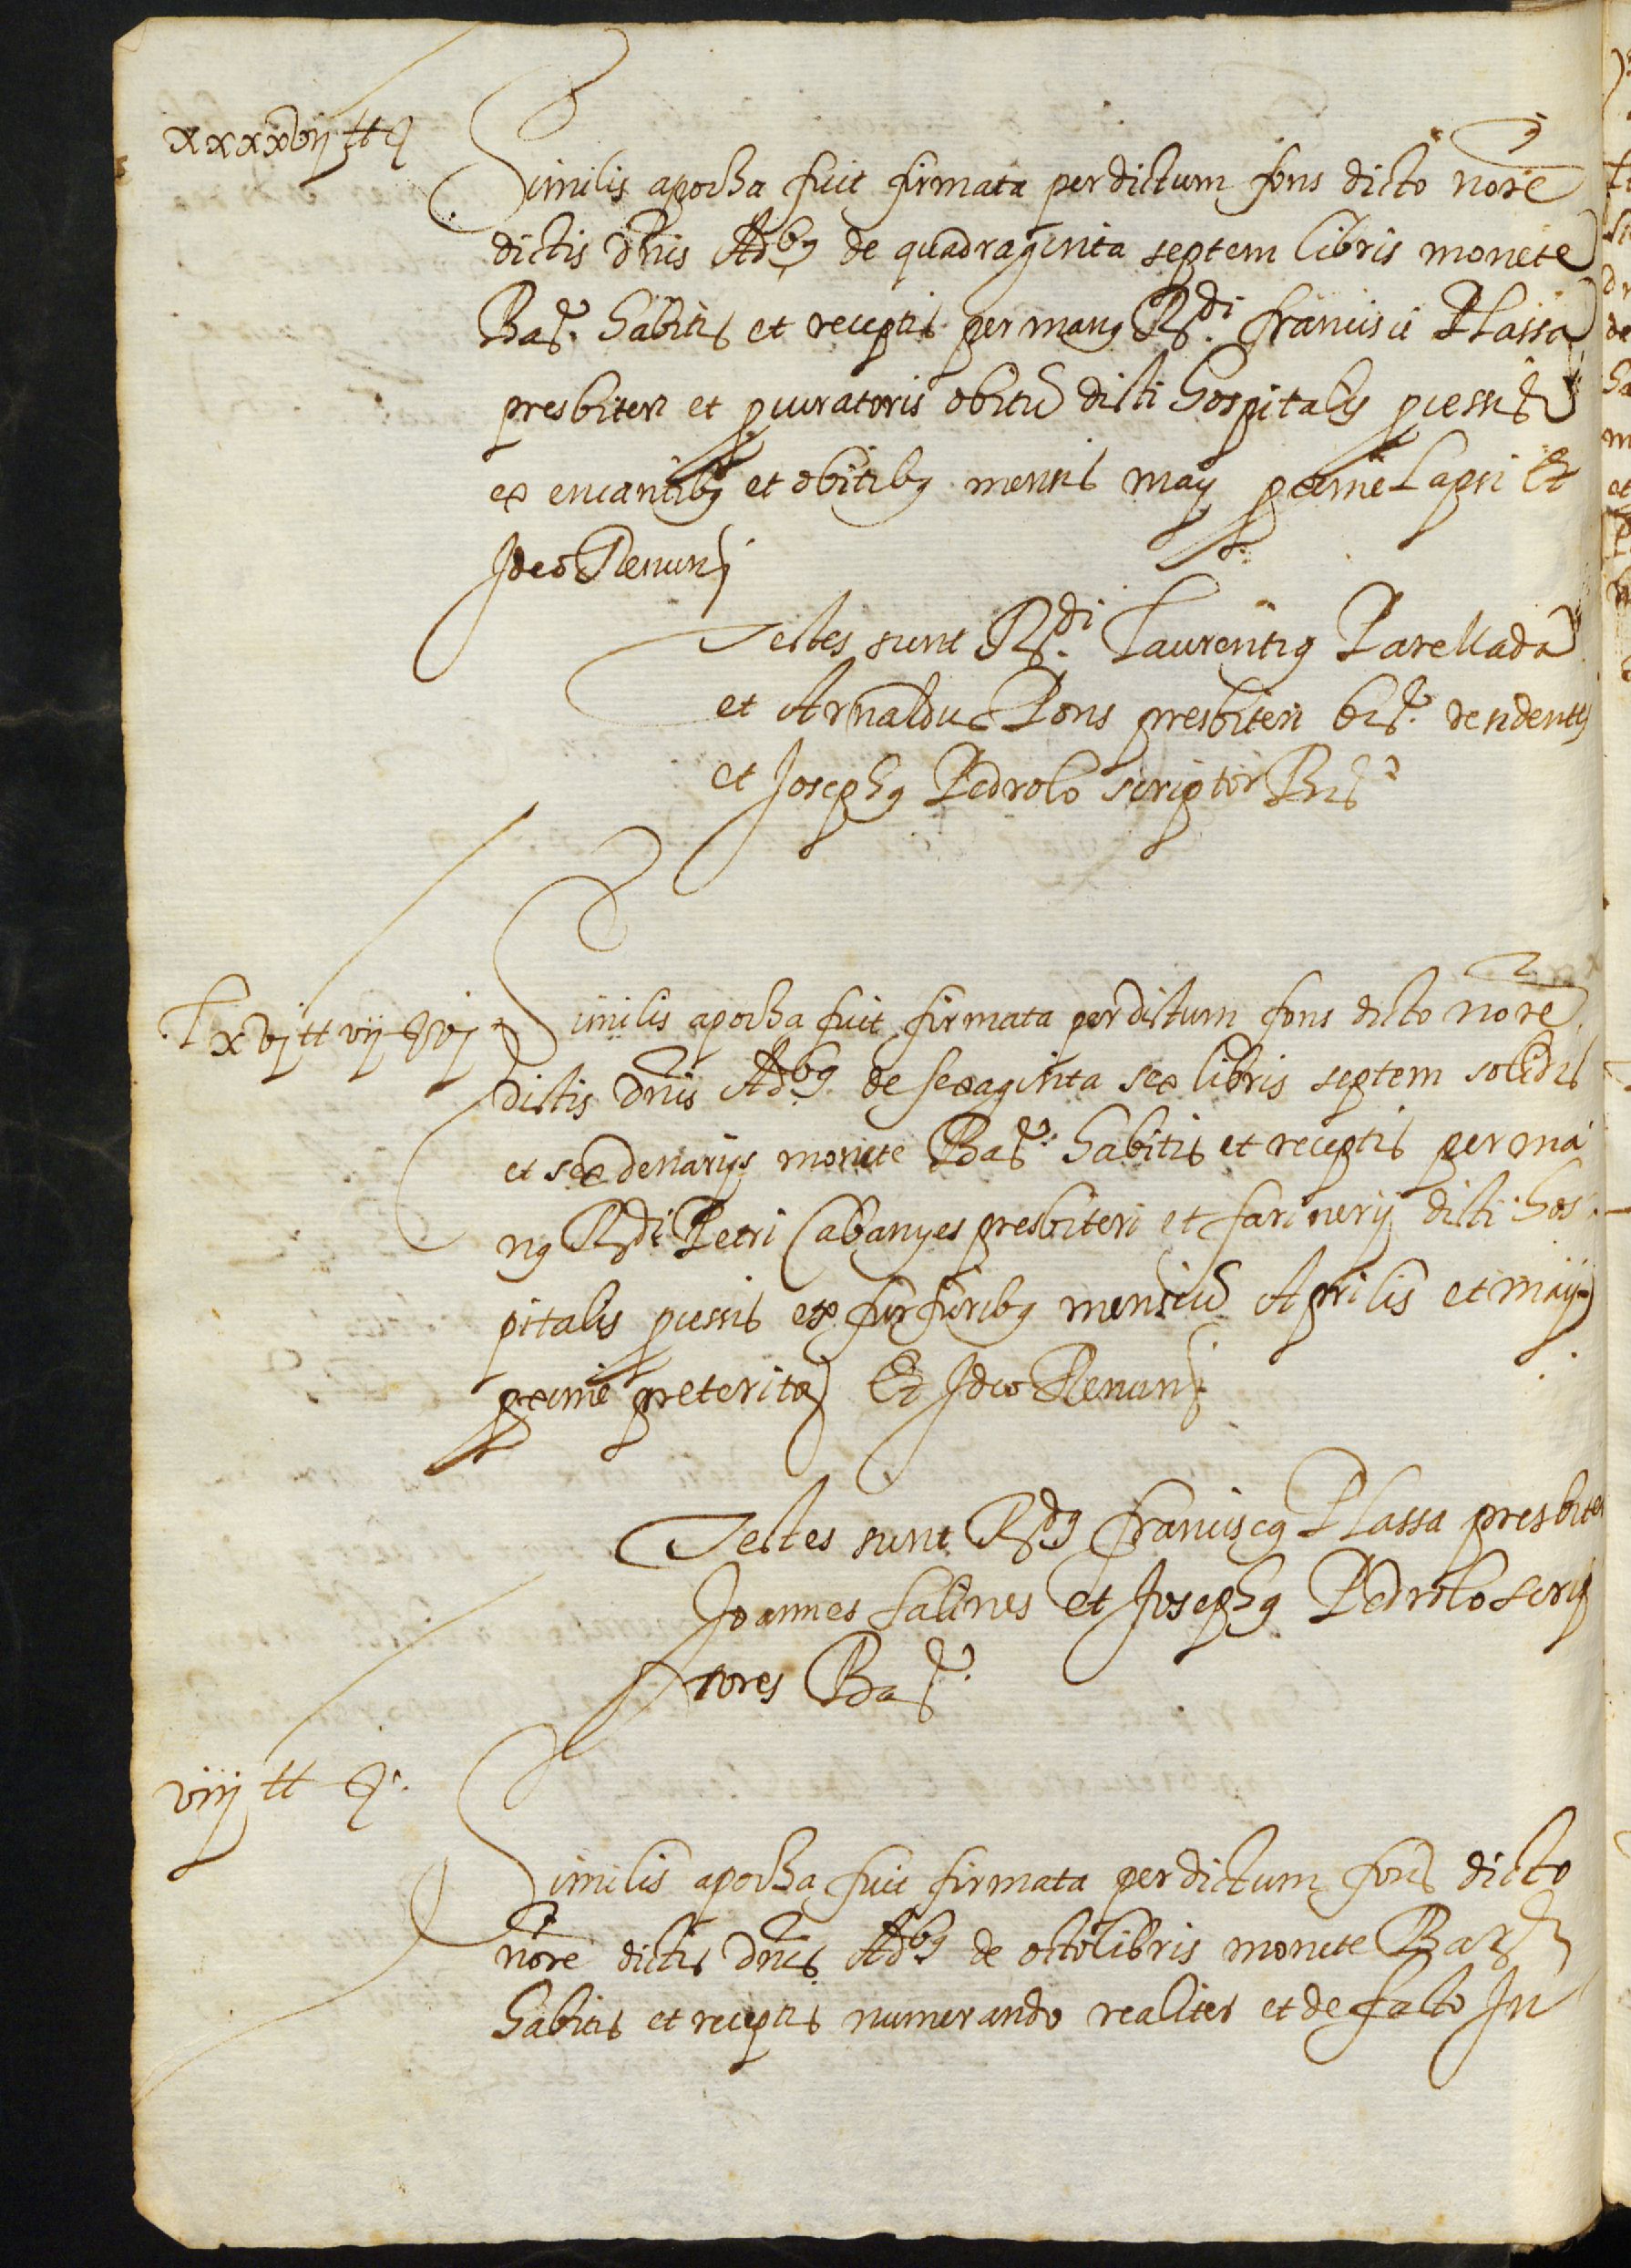 xxxxvij tt ꝭ
Similis apocha fuit firmata per dictum fons dicto noīe
dictis dn̄is Adb9 de quadraginta septem libris monete
Baꝭ. habitis et receptis per man9 Rdi. francisci Plassa
presbiteri et ꝓcuratoris obitū dicti hospitalis ꝓcessis
ex encantib9 et obitib9 mensis maij ꝓxime Lapsi Et
Ideo Renunꝭ
Testes sunt Rdi. Laurenti9 Parellada
et Arnaldus Pons presbiteri bīꝭ. residentes
et Joseph9 Pedrolo scriptor Bnꝭ
Lxvj tt vij ꝭ vj
Similis apocha fuit firmata per dictum fons dicto noīe
dictis dn̄is Adb9 de sexaginta sex libris septem solidis
et sex denarijs monete Baꝭ. habitis et receptis per ma
n9 Rdi Petri Cabanyes presbiteri et farinerij dicti hos
pitalis ꝓcessis ex furfurib9 mensiū Aprilis et maij
ꝓxime preterita Et Ideo Renunꝭ
Testes sunt Rd9 francisc9 Plassa presbiter
Joannes Salines et Joseph9 Pedrolo scrip
tores Baꝭ.
viij tt ꝭ.
Similis apocha fuit firmata per dictum fons dicto
noīe dictis dn̄is Adb9 de octo libris monete Barꝭ
habitis et receptis numerando realiter et de facto In